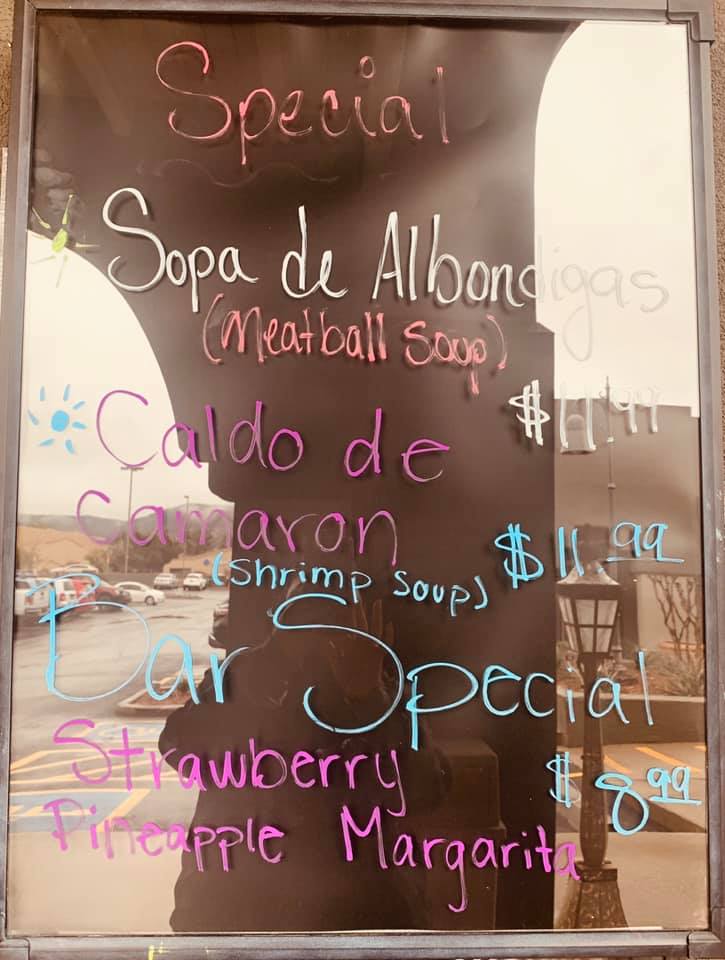 Special
Sopa de Albondigas
(Meatball Soup)
$11.99
Caldo de
Camaron
$11.99
(Shrimp Soup)
Bar Special
Strawberry
$8.99
Pineapple Margarita